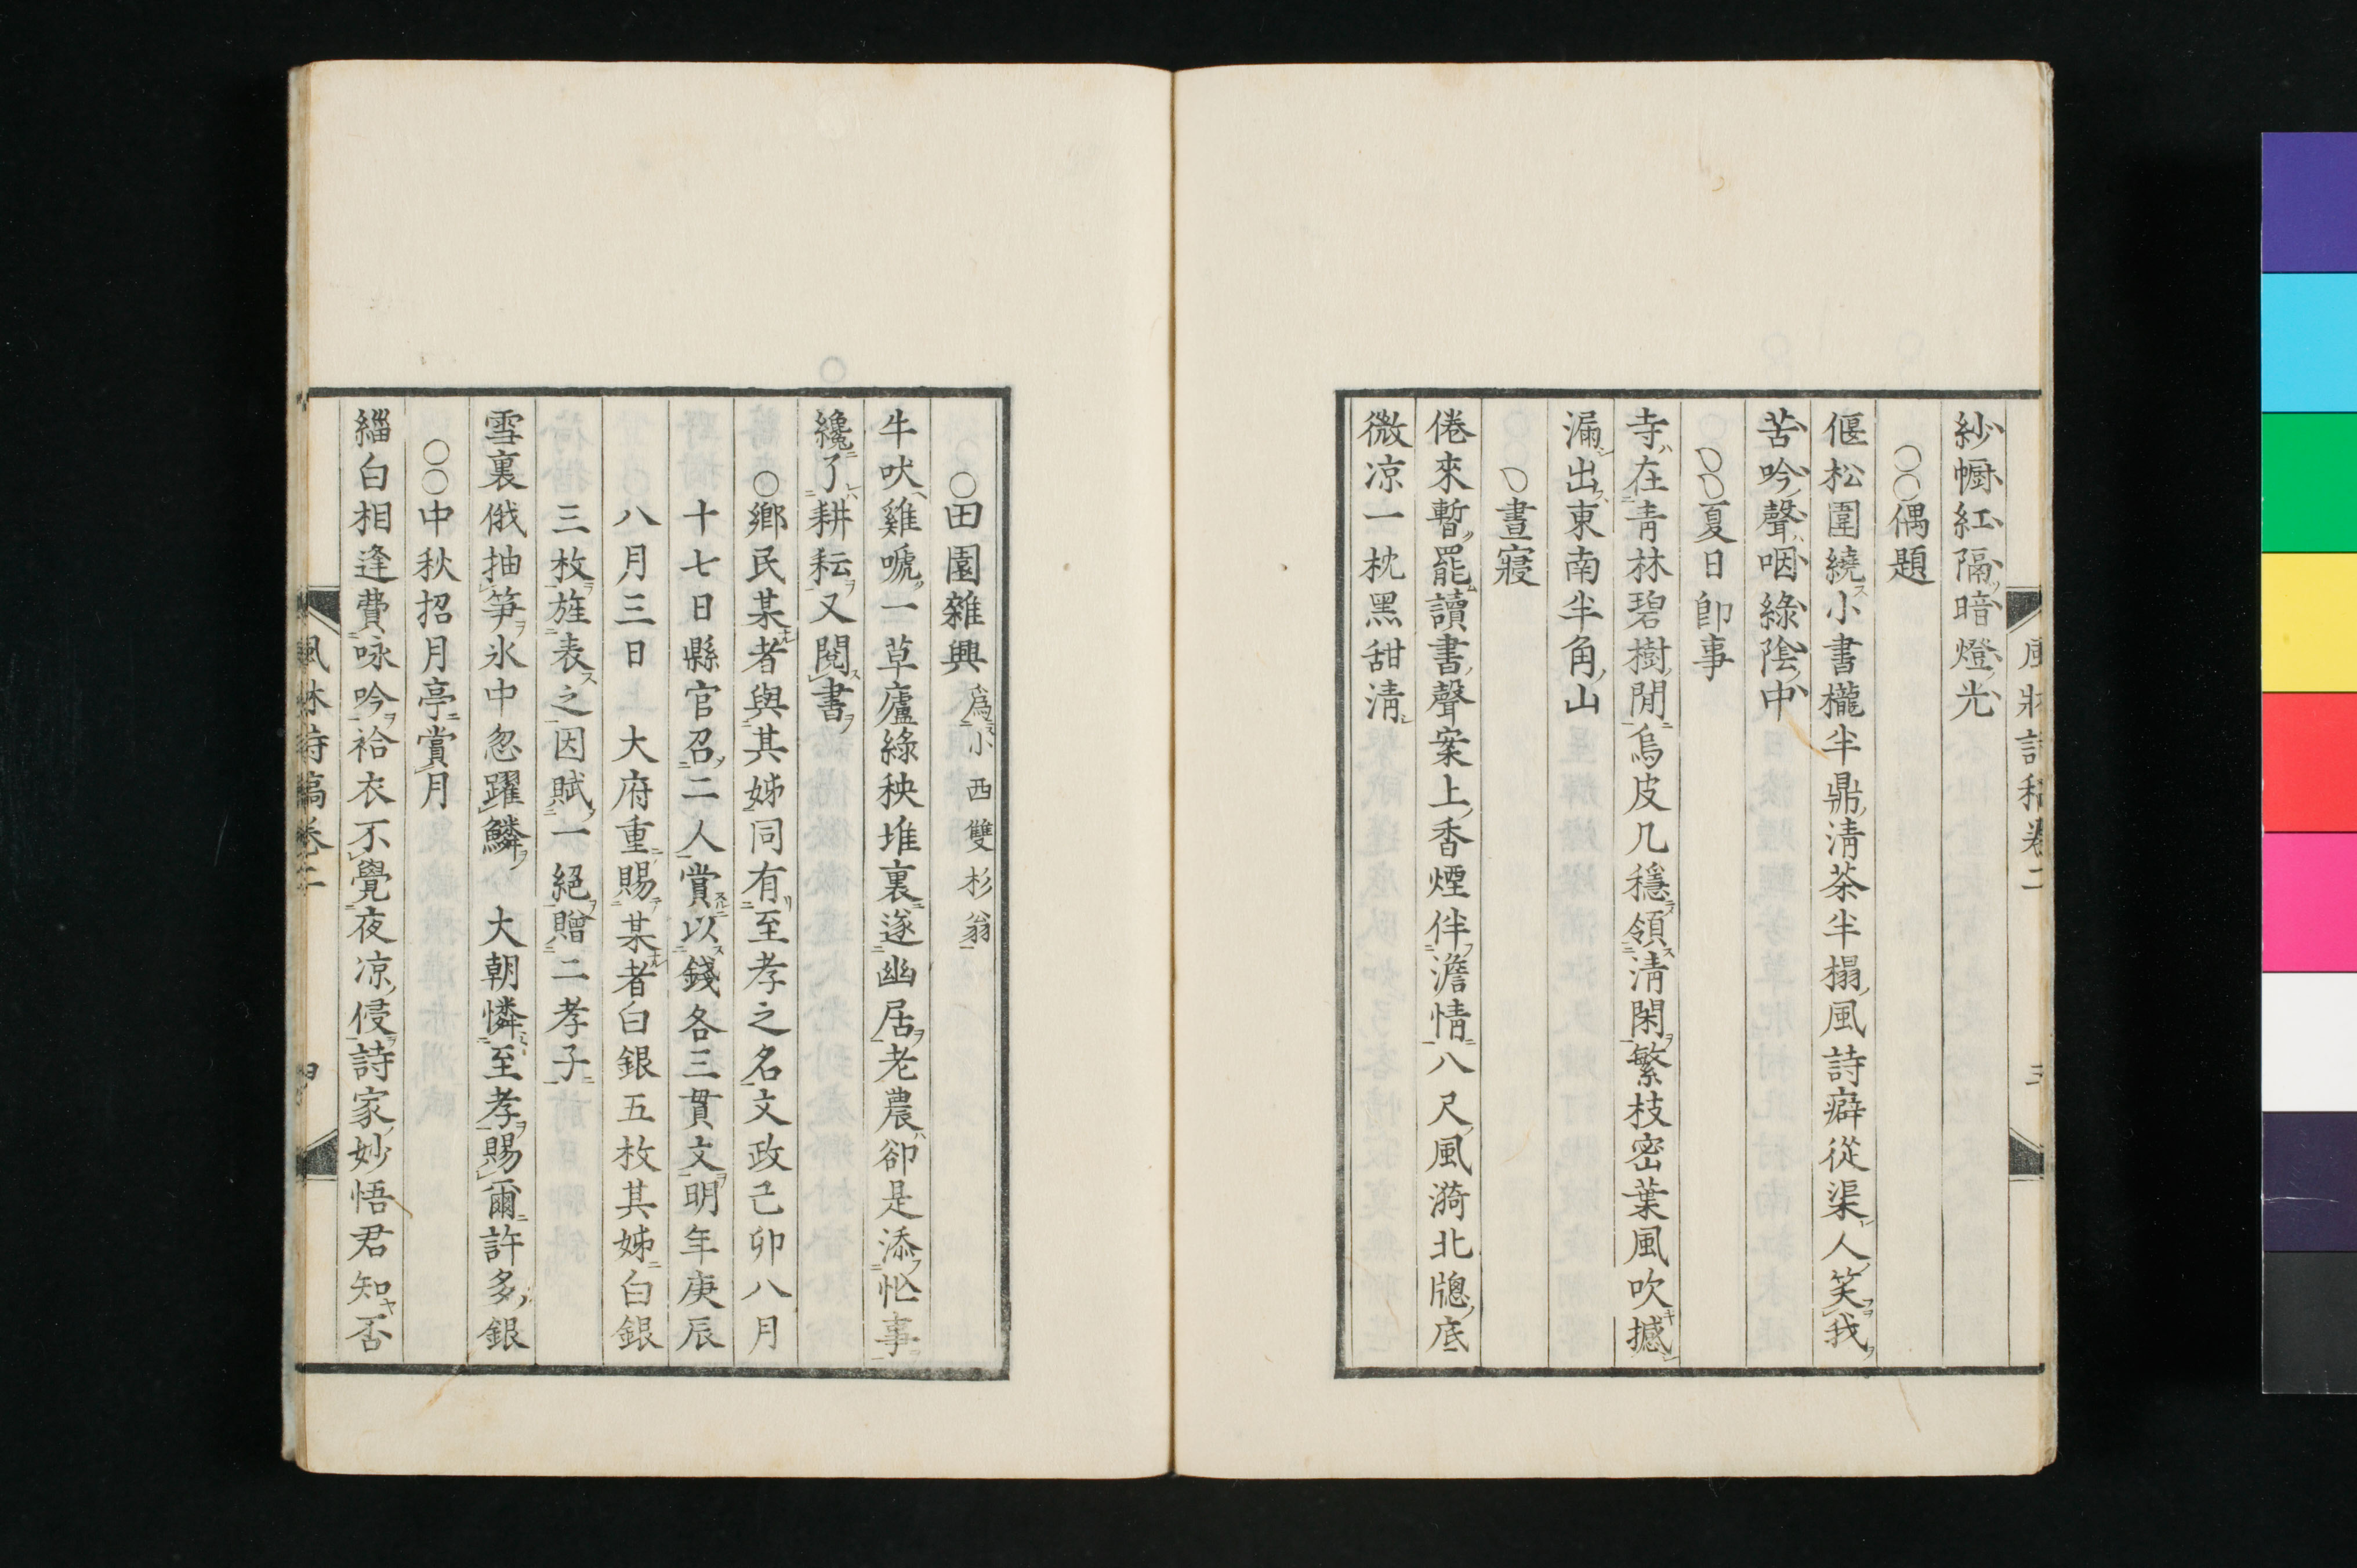 紗幮紅隔暗燈光
○○偶題
偃松圍繞小書櫳半鼎清茶半榻風詩癖從渠人笑我
苦吟聲咽綠陰中
○○夏日卽事
寺在青林碧樹閒烏皮几穩領清閑繁枝密葉風吹撼
漏出東南半角山
○晝寢
倦來暫罷讀書聲案上香煙伴澹情八尺風漪北牕底
微凉一枕黑甜清
○田園雜興爲小西雙杉翁
牛吠雞號一草廬綠秧堆裏遂幽居老農卻是添忙事
纔了耕耘又閱書
○鄉民某者與其姊同有至孝之名文政己卯八月
十七日縣官召二人賞以錢各三貫文明年庚辰
八月三日　大府重賜某者白銀五枚其姊白銀
三枚旌表之因賦一絕贈二孝子
雪裏俄抽笋氷中忽躍鱗　大朝憐至孝賜爾許多銀
○○中秋招月亭賞月
緇白相逢費咏吟袷衣不覺夜凉侵詩家妙悟君知否